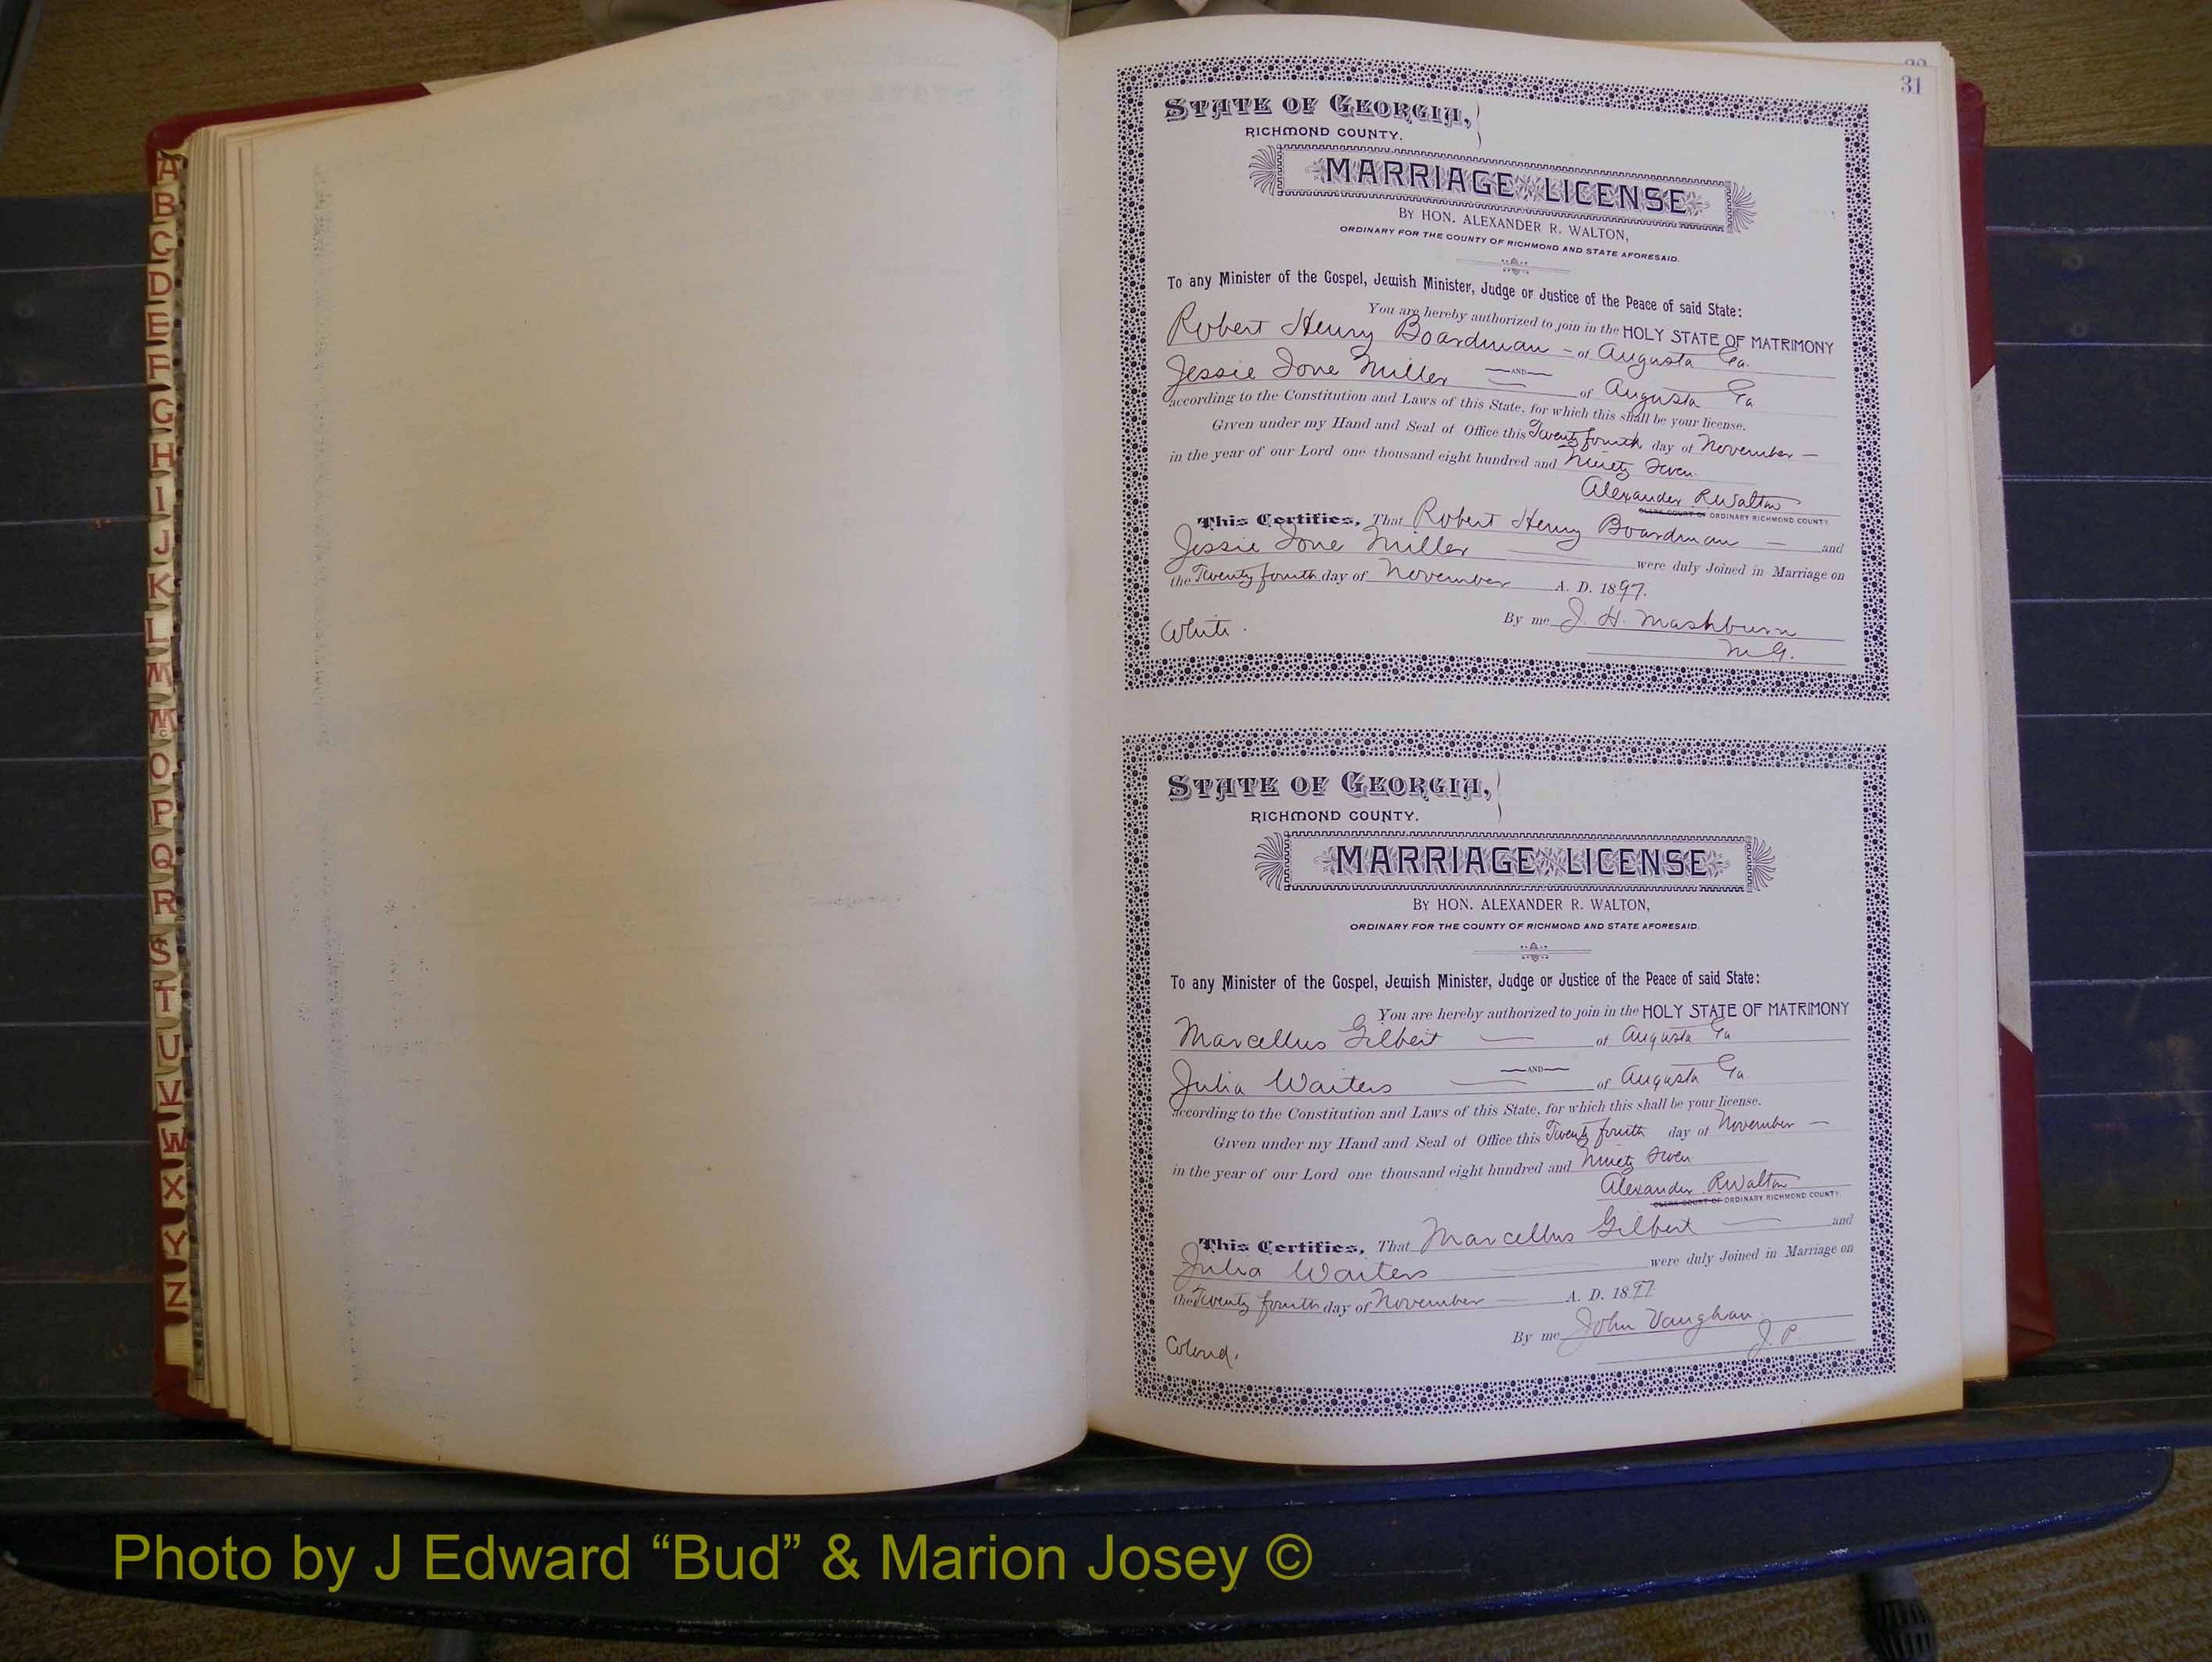 A
B
C
D
E
F
G
H
I
J
K
L
M
Mc
O
P
Q
R
S
T
U
V
W
X
Y
Z
31
STATE OF GEORGIA,
RICHMOND COUNTY.
MARRIAGE LICENSE
BY HON. ALEXANDER R. WALTON,
ORDINARY FOR THE COUNTY OF RICHMOND AND STATE AFORESAID.
To any Minister of the Gospel, Jewish Minister, Judge or Justice of the Peace of said State:
You are hereby authorized to join in the HOLY STATE OF MATRIMONY
Robert Henry Boardman - of Augusta Ga.
AND
Jessie Ione Miller of Augusta Ga
according to the Constitution and Laws of this State, for which this shall be your license.
Given under my Hand and Seal of Office this Twenty fourth day of November -
in the year of our Lord one thousand eight hundred and Ninety Seven
Alexander R Walton
CLERK COURT OF ORDINARY RICHMOND COUNTY
This Certifies, That Robert Henry Boardman - and
Jessie Ione Miller were duly Joined in Marriage on
the Twenty fourth day of November A. D. 1897.
White. By me J. H. Mashburn
M G.
STATE OF GEORGIA,
RICHMOND COUNTY.
MARRIAGE LICENSE
BY HON. ALEXANDER R. WALTON,
ORDINARY FOR THE COUNTY OF RICHMOND AND STATE AFORESAID.
To any Minister of the Gospel, Jewish Minister, Judge or Justice of the Peace of said State:
You are hereby authorized to join in the HOLY STATE OF MATRIMONY
Marcellus Gilbert - of Augusta Ga
AND
Julia Waiters of Augusta Ga
according to the Constitution and Laws of this State, for which this shall be your license.
Given under my Hand and Seal of Office this Twenty fourth day of November -
in the year of our Lord one thousand eight hundred and Ninety Seven
Alexander R Walton
CLERK COURT OF ORDINARY RICHMOND COUNTY.
This Certifies, That Marcellus Gilbert - and
Julia Waiters were duly Joined in Marriage on
the Twenty fourth day of November - A. D. 1897
Colored. By me John Vaughan
J. P.
Photo by J Edward “Bud” & Marion Josey ©